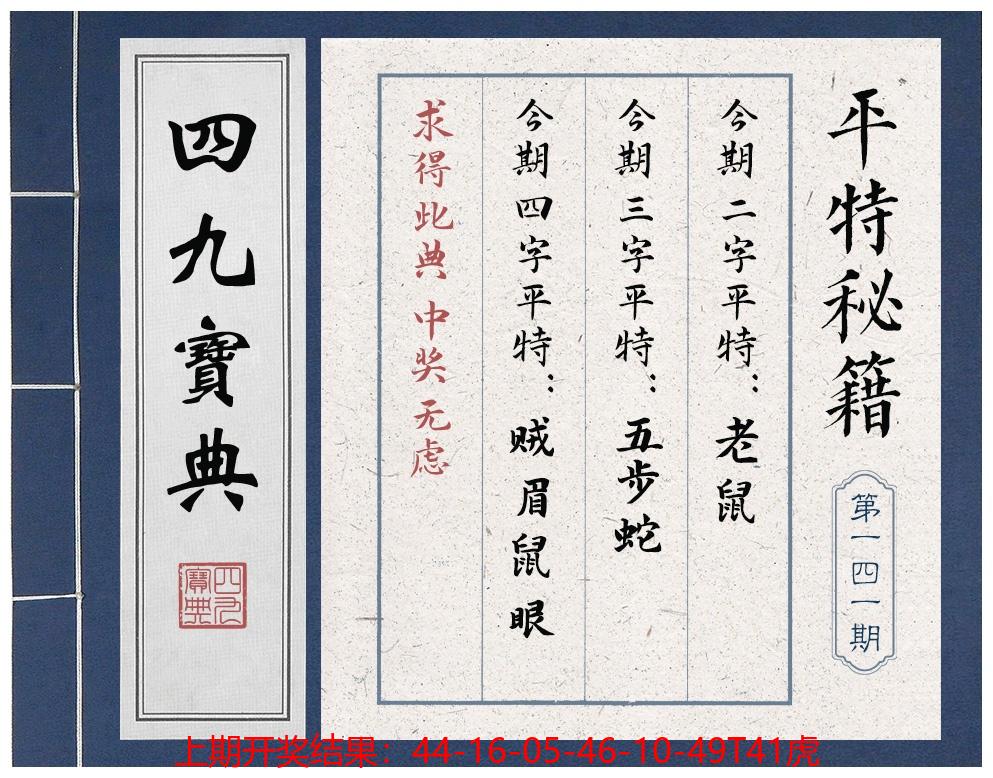 平特秘籍
第一四一期
今期二字平特：老鼠
今期三字平特：五步蛇
今期四字平特：贼眉鼠眼
求得此典 中奖无虑
四九寶典
四九寶典
上期开奖结果：44-16-05-46-10-49T41虎